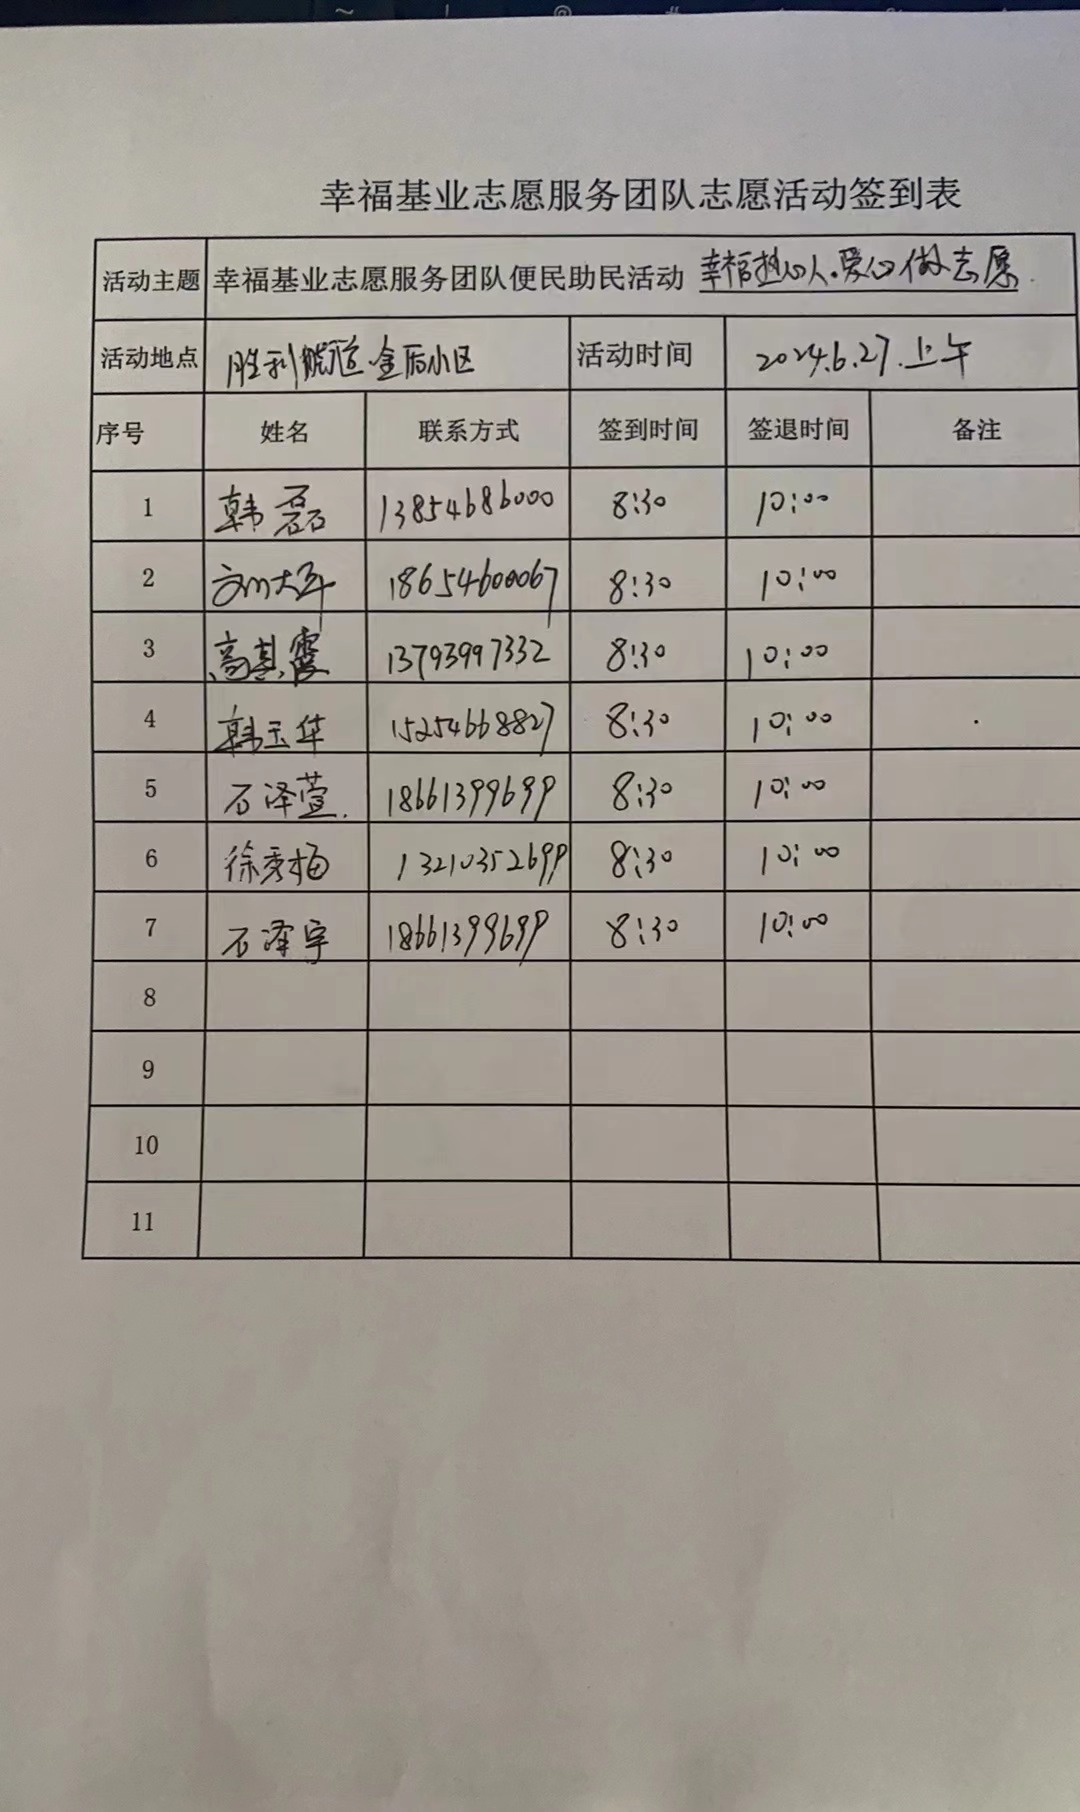 幸福基业志愿服务团队志愿活动签到表
活动主题 幸福基业志愿服务团队便民助民活动 幸福热心人.爱心做志愿.
活动地点 胜利街道金辰小区 活动时间 2024.6.27.上午
序号 姓名 联系方式 签到时间 签退时间 备注
1 韩磊 13854686000 8:30 10:00
2 刘大军 18654600067 8:30 10:00
3 高其霞 13793997332 8:30 10:00
4 韩玉华 15254668827 8:30 10:00
5 石泽萱. 18661399699 8:30 10:00
6 徐秀梅 13210352699 8:30 10:00
7 石泽宇 18661399699 8:30 10:00
8
9
10
11